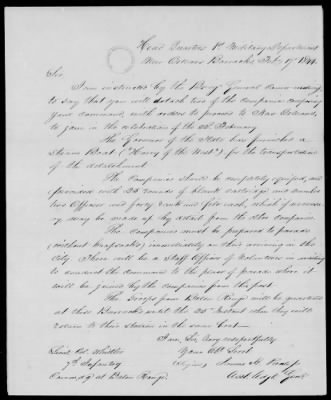 Head Quarters 1st Military Department
New Orleans Barracks, Feby 17 1844
Sir,
I am instructed by the Brig. General commanding
to say that you will detach two of the companies composing
your command, with orders to proceed to New Orleans,
to join in the celebration of the 22d February.
The Governor of the State has furnished a
Steam Boat ("Henry of the West") for the transportation
of the detachment.
The Companies should be completely equipped, and
provided with 25 rounds of blank cartridge and number
two Officers and forty rank and file each, which if necessary
may be made up by detail from the other companies.
The companies must be prepared to parade
(without knapsacks) immediately on their arriving in the
City. There will be a Staff Officer of Volunteers in waiting
to conduct the command to the place of parade where it
will be joined by the companies from this post.
The troops from Baton Rouge will be quartered
at these Barracks until the 23d Instant when they will
return to their station in the same boat.
I am, Sir, Very respectfully
Your Obt. Servt.
Asst. Adjt. Genl.
Lieut. Col. Whistler
7th Infantry
Command'g at Baton Rouge.